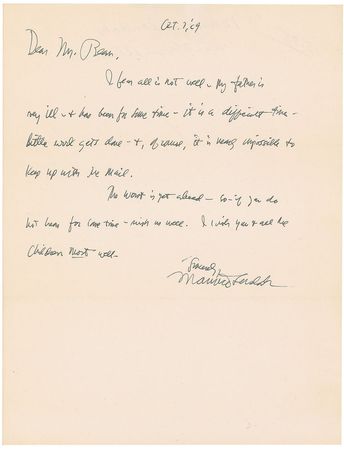 Oct. 7, '69
Dear Mr. Bam,
I fear all is not well - My father is
very ill - & has been for some time - it is a difficult time -
little work gets done - &, of course, it is nearly impossible to
keep up with the mail.
The worst is yet ahead - so - if you do
not hear for some time - wish us well. I wish you & all the
children most well -
Sincerely,
Maurice Sendak